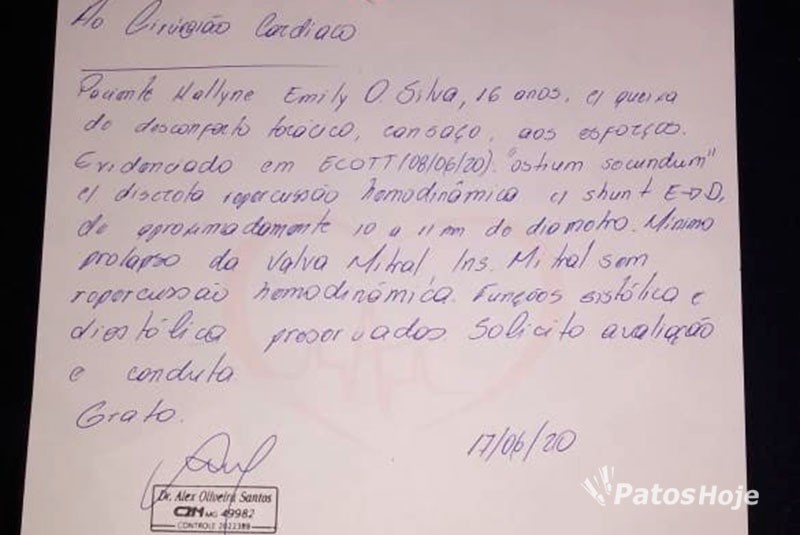 Ao Cirurgião Cardiaco
Paciente Kallyne Emily O. Silva, 16 anos, c/ queixa
de desconforto torácico, cansaço, aos esforços.
Evidenciado em ECOTT (08/06/20). "ostium secundum"
c/ discreta repercussão hemodinâmica c/ shunt E→D,
de aproximadamente 10 a 11 mm de diametro. Mínimo
prolapso da Valva Mitral, Ins. Mitral sem
repercussão hemodinâmica. Funções sistólica e
diastólica preservados Solicito avaliação
e conduta
Grato.
17/06/20
Dr. Alex Oliveira Santos
CRM MG 49982
CONTROLE 2022389
PatosHoje